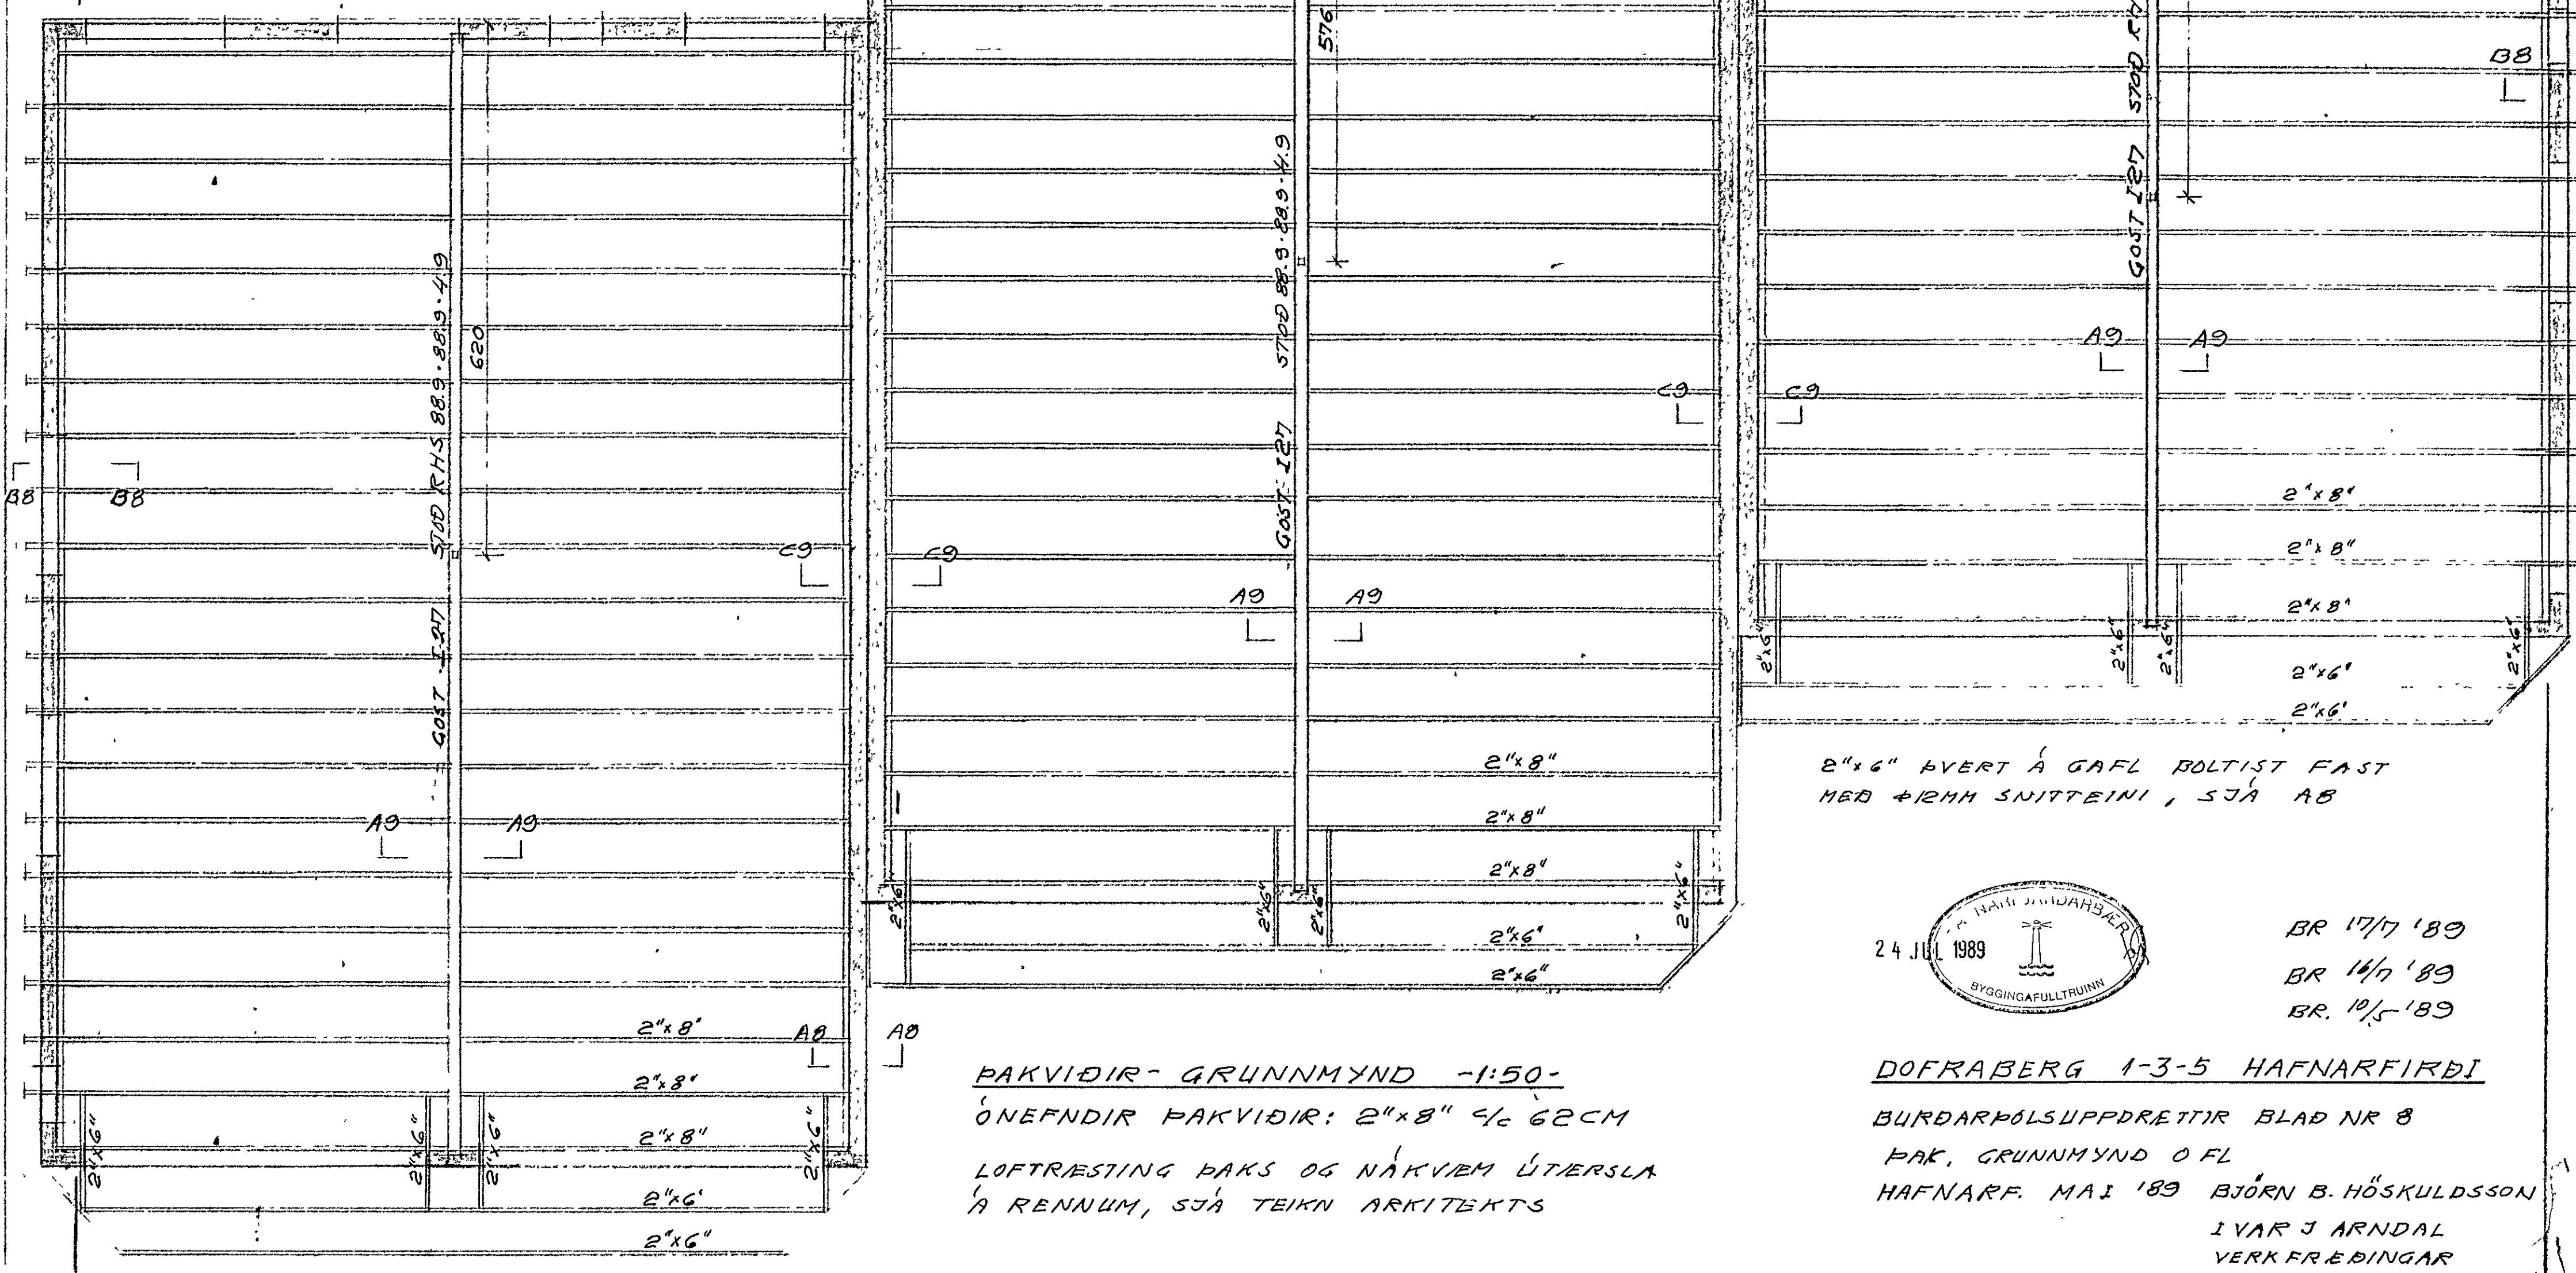 STOÐ RHS 88.9·88.9·4.9
620
GOST I27
B8
B8
C9
C9
A9
A9
A8
A8
2"x8"
2"x8"
2"x8"
2"x6"
2"x6"
2"x6"
2"x6"
2"x6"
2"x6"
576
STOÐ 88.9·88.9·4.9
GOST I27
C9
C9
A9
A9
2"x8"
2"x8"
2"x8"
2"x6"
2"x6"
2"x6"
2"x6"
2"x6"
2"x6"
GOST I27 STOÐ
B8
A9
A9
2"x8"
2"x8"
2"x8"
2"x6"
2"x6"
2"x6"
2"x6"
2"x6"
2"x6"
2"x6" ÞVERT Á GAFL BOLTIST FAST
MEÐ Φ12MM SNITTEINI, SJÁ A8
24 JUL 1989
BYGGINGAFULLTRUINN
BR 17/7 '89
BR 16/7 '89
BR. 10/5 '89
ÞAKVIÐIR - GRUNNMYND -1:50-
ÓNEFNDIR ÞAKVIÐIR: 2"x8" c/c 62CM
LOFTRÆSTING ÞAKS OG NÁKVÆM ÚTÆRSLA
Á RENNUM, SJÁ TEIKN ARKITEKTS
DOFRABERG 1-3-5 HAFNARFIRÐI
BURÐARÞOLSUPPDRÆTTIR BLAÐ NR 8
ÞAK, GRUNNMYND O FL
HAFNARF. MAI '89 BJÖRN B. HÖSKULDSSON
IVAR J ARNDAL
VERKFRÆÐINGAR